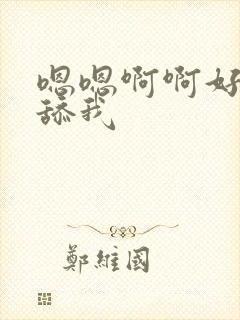 嗯嗯啊啊好
舔我
鄭維國